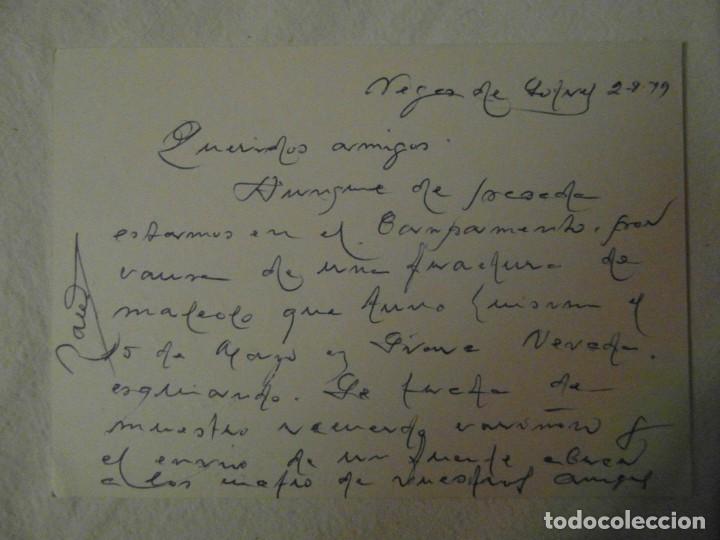 Vegas de 2-8-79
Queridos amigos.
Aunque de pasada
estamos en el Campamento. por
causa de una fractura de
maleolo que tuvo Luisina el
15 de Mayo en Sierra Nevada.
esquiando. Le
nuestro recuerdo cariñoso y
el envio de un fuerte abrazo
a los de vuestros amigos
todocoleccion.net